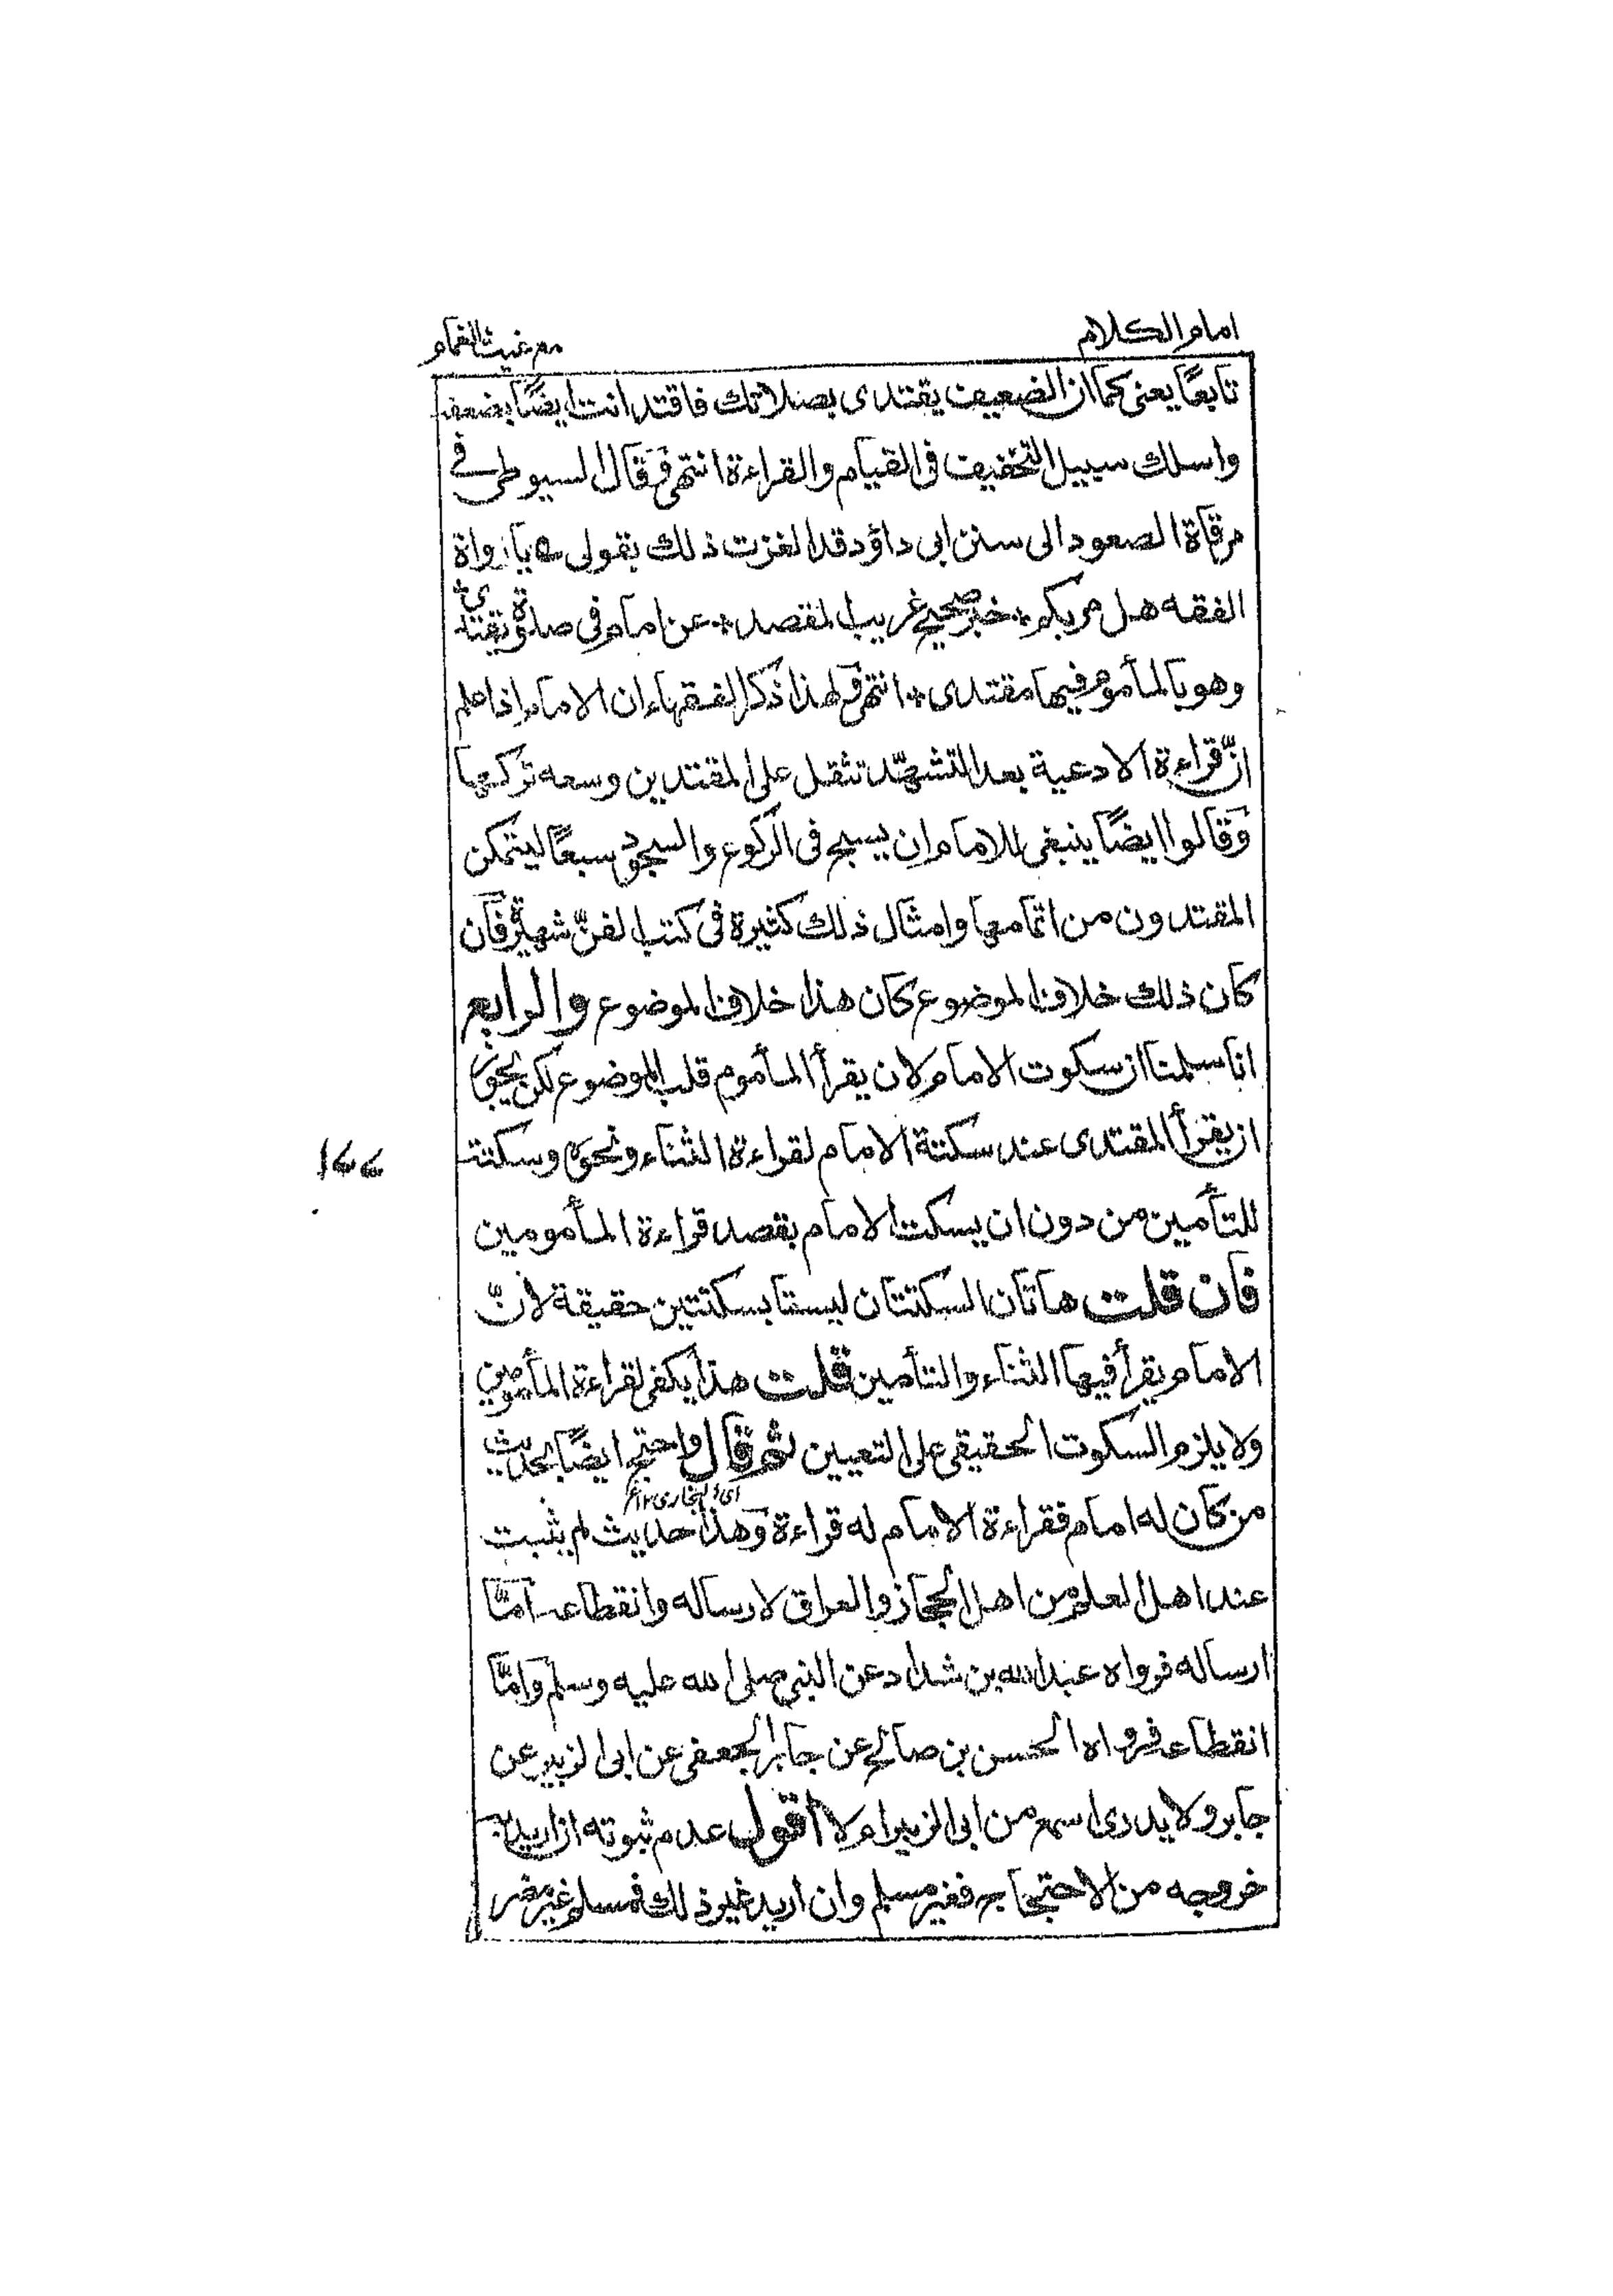 امام الكلام
مع غيث الغمام
تابعًا يعنى كما ان الضعيف يقتدى بصلاتك فاقتد انت ايضًا بضعفه
واسلك سبيل التخفيف فى القيام والقراءة انتهى وقال السيوطى فى
مرقاة الصعود الى سنن ابى داؤد قد الغزت ذلك بقولى ؎ يا رواة
الفقه هل مر بكم * خبر صحيح غريب المقصد * عن امام فى صلوة يقتدى
وهو بالمأموم فيها مقتدى * انتهى ولهذا ذكر الفقهاء ان الامام اذا علم
انّ قراءة الادعية بعد التشهّد تثقل على المقتدين وسعه تركها
وقالوا ايضًا ينبغى للامام ان يسبح فى الركوع والسجود سبعًا ليتمكن
المقتدون من اتمامها وامثال ذلك كثيرة فى كتب الفنّ شهيرة فان
كان ذلك خلاف الموضوع كان هذا خلاف الموضوع والرابع
انا سلمنا ان سكوت الامام لان يقرأ المأموم قلب الموضوع لكن يجوز
ان يقرأ المقتدى عند سكتة الامام لقراءة الثناء ونحوه وسكتته
للتأمين من دون ان يسكت الامام بقصد قراءة المأمومين
فان قلت هاتان السكتتان ليستا بسكتتين حقيقة لانّ
الامام يقرأ فيها الثناء والتأمين قلت هذا يكفى لقراءة المأمومين
ولا يلزم السكوت الحقيقى على التعيين ثم قال واحتج ايضًا بحديث
اى البخارى ١٢
من كان له امام فقراءة الامام له قراءة وهذا حديث لم يثبت
عند اهل العلم من اهل الحجاز والعراق لارساله وانقطاعه امّا
ارساله فرواه عبد الله بن شداد عن النبى صلى الله عليه وسلم وامّا
انقطاعه فرواه الحسن بن صالح عن جابر الجعفى عن ابى الزبير عن
جابر ولا يدرى اسمع من ابى الزبير ام لا اقول عدم ثبوته ان اريد به
خروجه من الاحتجاج به فغير مسلم وان اريد غير ذلك فمسلم غير مضر
١٧٧